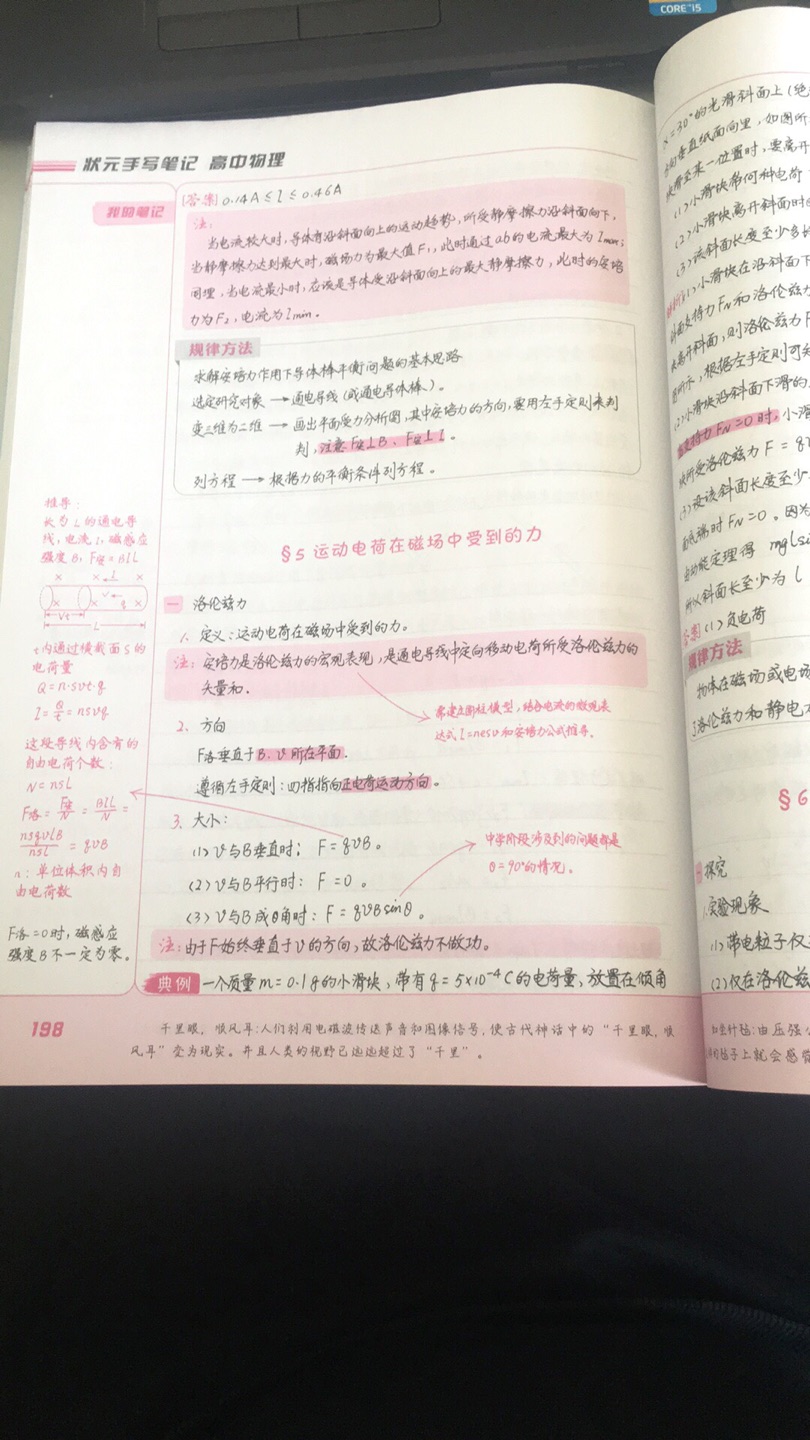 CORE i5
状元手写笔记 高中物理
我的笔记
[答案] 0.14A≤I≤0.46A
注:
当电流较大时,导体有沿斜面向上的运动趋势,所受静摩擦力沿斜面向下,
当静摩擦力达到最大时,磁场力为最大值F₁,此时通过ab的电流最大为Imax;
同理,当电流最小时,应该是导体受沿斜面向上的最大静摩擦力,此时的安培
力为F₂,电流为Imin。
规律方法
求解安培力作用下导体棒平衡问题的基本思路
选定研究对象→通电导线(或通电导体棒、)。
变三维为二维→画出平面受力分析图,其中安培力的方向,要用左手定则来判
判,注意F安⊥B、F安⊥I。
列方程→根据力的平衡条件列方程。
推导:
长为L的通电导
线,电流I,磁感应
强度B,F安=BIL
I
v
q
vt
L
t内通过横截面S的
电荷量
Q=n·svt·q
I=Q/t=nsvq
这段导线内含有的
自由电荷个数:
N=nsL
F洛=F安/N=BIL/N=
nsqvLB/nsL=qvB
n:单位体积内自
由电荷数
F洛=0时,磁感应
强度B不一定为零。
§5 运动电荷在磁场中受到的力
一 洛伦兹力
1. 定义:运动电荷在磁场中受到的力。
注:安培力是洛伦兹力的宏观表现,是通电导线中定向移动电荷所受洛伦兹力的
矢量和.
需建立圆柱模型,结合电流的微观表
达式I=nesv和安培力公式推导。
2. 方向
F洛垂直于B、v所在平面.
遵循左手定则:四指指向正电荷运动方向。
3. 大小:
(1)v与B垂直时; F=qvB。
中学阶段涉及到的问题都是
θ=90°的情况。
(2)v与B平行时: F=0 。
(3)v与B成θ角时: F=qvBsinθ。
注:由于F始终垂直于v的方向,故洛伦兹力不做功。
典例 一个质量m=0.1g的小滑块,带有q=5×10⁻⁴C的电荷量,放置在倾角
198
千里眼,顺风耳:人们利用电磁波传送声音和图像信号,使古代神话中的“千里眼,顺
风耳”变为现实。并且人类的视野已远远超过了“千里”。
α=30°的光滑斜面上(绝
方向垂直纸面向里,如图所
块滑至某一位置时,要离开
(1)小滑块带何种电荷
(2)小滑块离开斜面时
(3)该斜面长度至少多
(1)小滑块在沿斜面下
斜面支持力FN和洛伦兹力
块离开斜面,则洛伦兹力F
图所示,根据左手定则可知
(2)小滑块沿斜面下滑的
当支持力FN=0时,小滑
块所受洛伦兹力F=qv
(3)设该斜面长度至少
面底端时FN=0。因为
由动能定理得 mgLsin
所以斜面长至少为l
答案(1)负电荷
规律方法
物体在磁场或电场
了洛伦兹力和静电力
§6
一 探究
1.实验现象
(1)带电粒子仅
(2)仅在洛伦兹
如坐针毡:由压强
的毡子上就会感觉